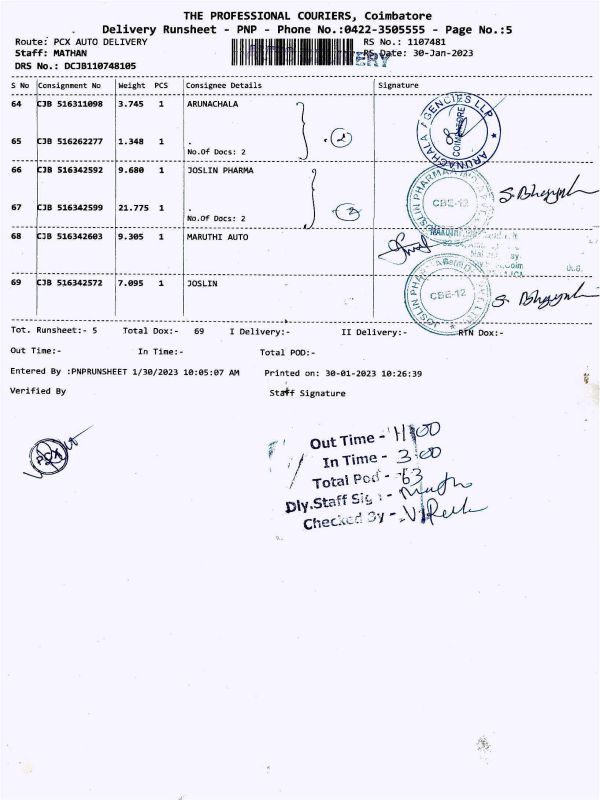 THE PROFESSIONAL COURIERS, Coimbatore
Delivery Runsheet - PNP - Phone No.:0422-3505555 - Page No.:5
Route: PCX AUTO DELIVERY RS No.: 1107481
Staff: MATHAN RS Date: 30-Jan-2023
DRS No.: DCJB110748105
S No Consignment No Weight PCS Consignee Details Signature
64 CJB 516311098 3.745 1 ARUNACHALA
ARUNACHALA AGENCIES LLP
COIMBATORE
2
65 CJB 516262277 1.348 1 .
No.Of Docs: 2
66 CJB 516342592 9.680 1 JOSLIN PHARMA
JOSLIN PHARMA
CBE-12
67 CJB 516342599 21.775 1 .
No.Of Docs: 2
68 CJB 516342603 9.305 1 MARUTHI AUTO
69 CJB 516342572 7.095 1 JOSLIN
JOSLIN PHARMA
CBE-12
Tot. Runsheet:- 5 Total Dox:- 69 I Delivery:- II Delivery:- RTN Dox:-
Out Time:- In Time:- Total POD:-
Entered By :PNPRUNSHEET 1/30/2023 10:05:07 AM Printed on: 30-01-2023 10:26:39
Verified By Staff Signature
PCX
Out Time - 11:00
In Time - 3:00
Total Pod - 63
Dly.Staff Sig : -
Checked By -